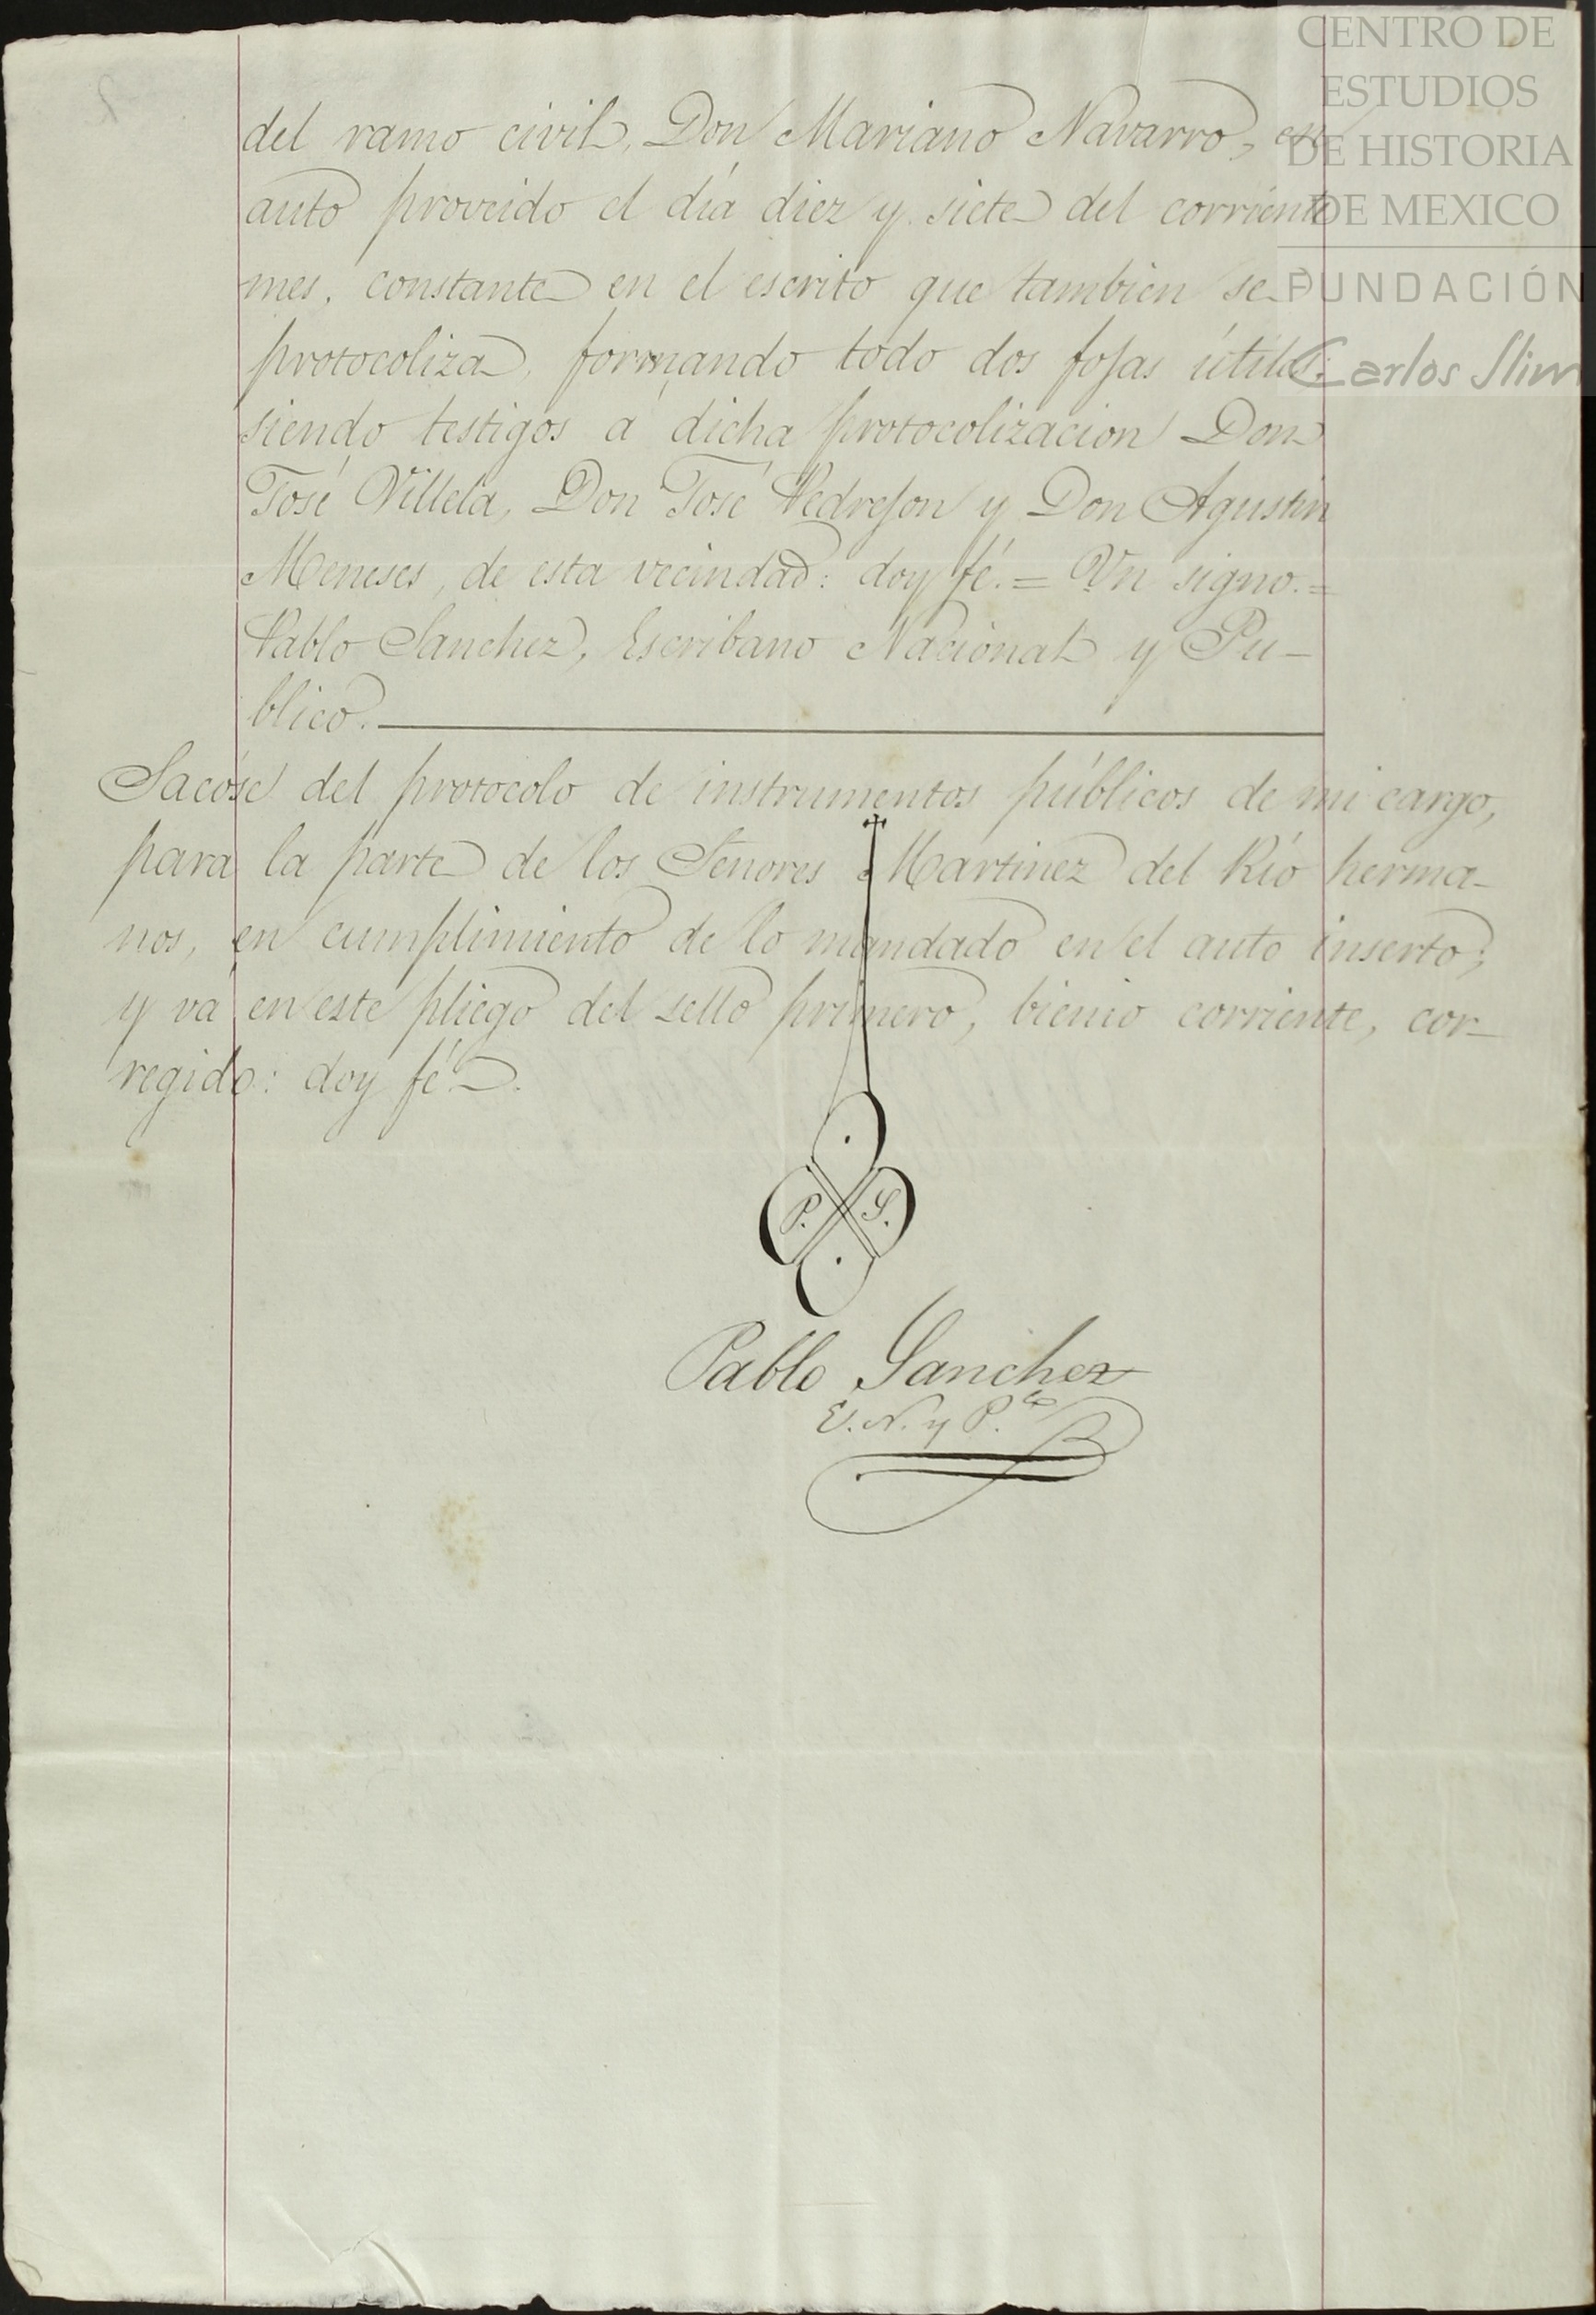 CENTRO DE
ESTUDIOS
DE HISTORIA
DE MEXICO
FUNDACIÓN
Carlos Slim
del ramo civil, Don Mariano Navarro, en
auto proveido el día diez y siete del corriente
mes, constante en el escrito que tambien se
protocoliza, formando todo dos fojas útiles;
siendo testigos a dicha protocolizacion Don
José Villela, Don José Pedrejon y Don Agustin
Meneses, de esta vecindad: doy fé. = Un signo. =
Pablo Sanchez, Escribano Nacional y Pu-
blico.
Sacóse del protocolo de instrumentos públicos de mi cargo,
para la parte de los Señores Martinez del Río herma-
nos, en cumplimiento de lo mandado en el auto inserto;
y va en este pliego del sello primero, bienio corriente, cor-
regido: doy fé.
P. S.
Pablo Sanchez
E. N. y P.co